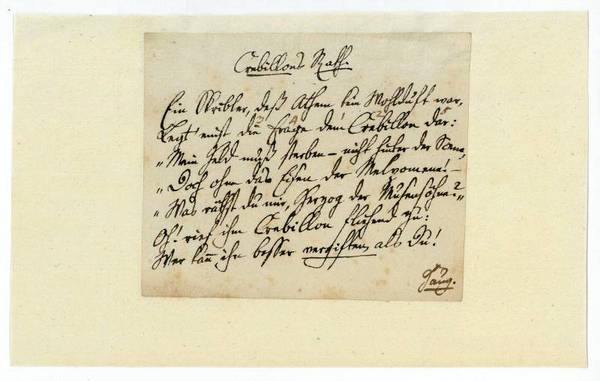 Crebillons Rath.
Ein Skribler, deß Athem kein Wohlduft war,
Legt' einst die Frage dem Crebillon dar:
„Mein Held muß sterben – nicht hinter der Scene,
„Doch ohne das Eisen der Melpomene! –
„Was räthst du mir, Herzog der Musensöhne?„
O! rief ihm Crebillon fliehend zu:
Wer kann ihn besser vergiften als Du!
Haug.